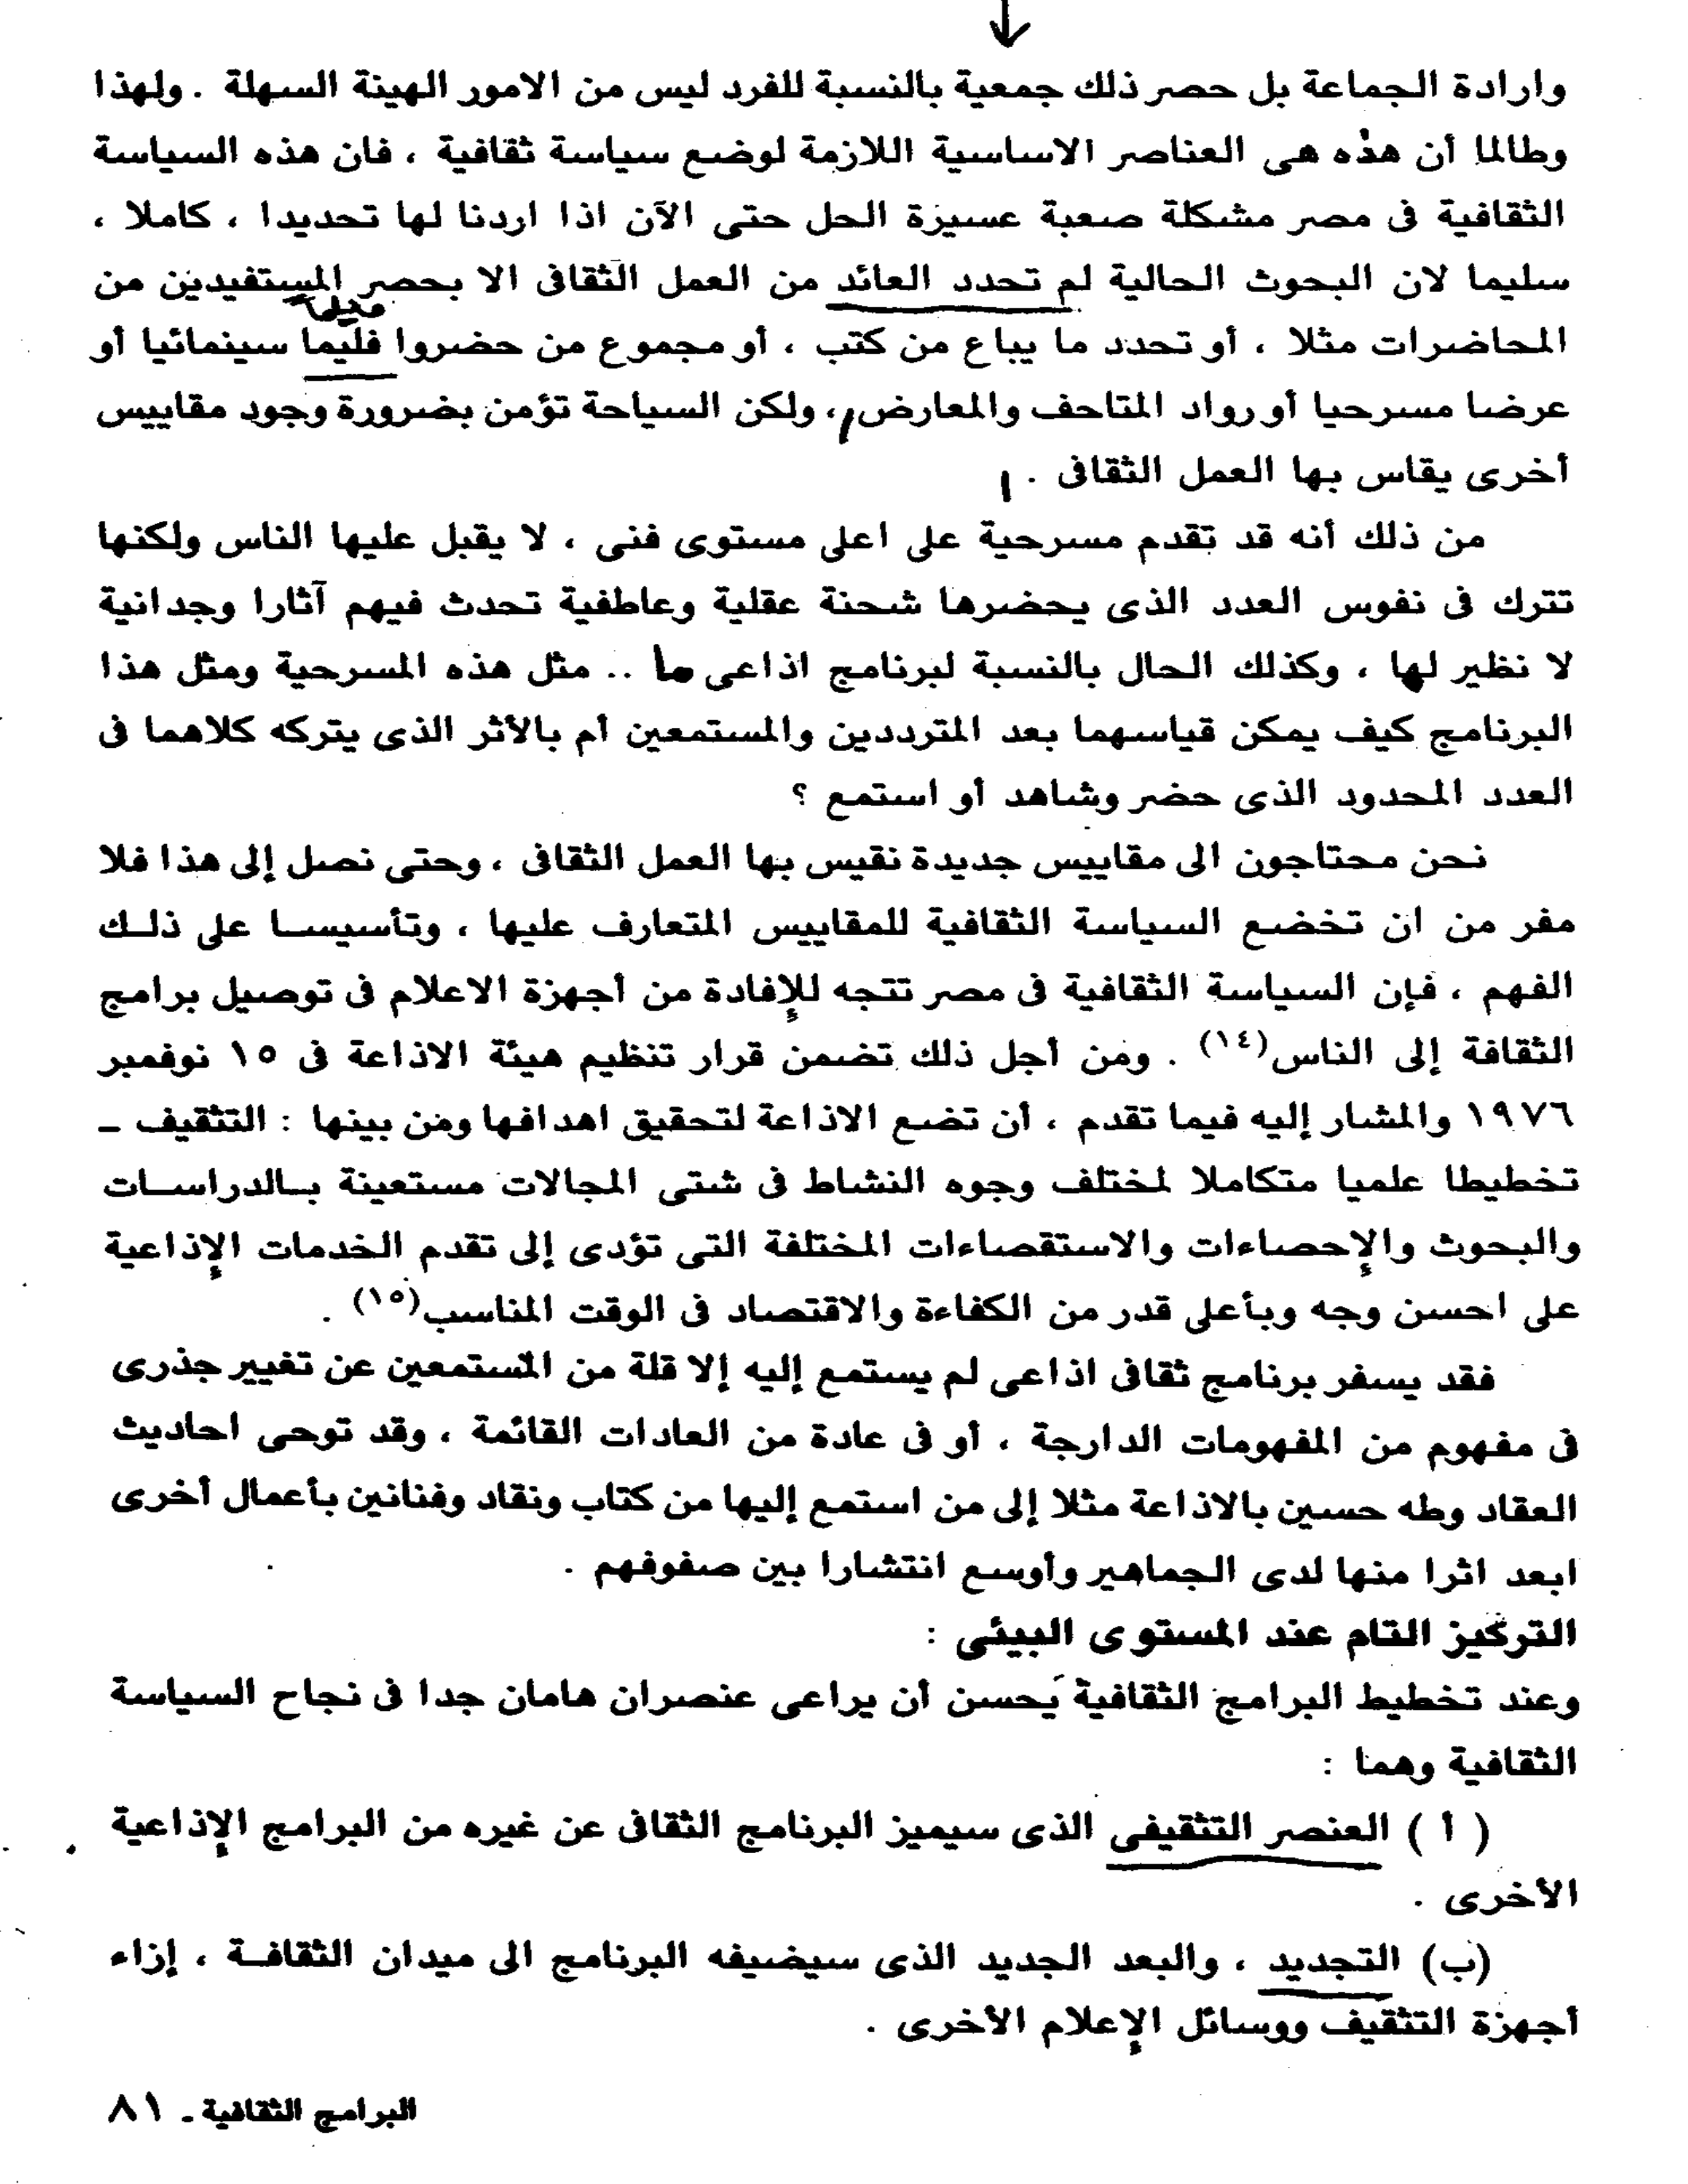 وارادة الجماعة بل حصر ذلك جمعية بالنسبة للفرد ليس من الامور الهينة السهلة . ولهذا
وطالما أن هذه هى العناصر الاساسية اللازمة لوضع سياسة ثقافية ، فان هذه السياسة
الثقافية فى مصر مشكلة صعبة عسيرة الحل حتى الآن اذا اردنا لها تحديدا ، كاملا ،
سليما لان البحوث الحالية لم تحدد العائد من العمل الثقافى الا بحصر المستفيدين من
المحاضرات مثلا ، أو تحدد ما يباع من كتب ، أو مجموع من حضروا فليما سينمائيا أو
عرضا مسرحيا أو رواد المتاحف والمعارض ، ولكن السياحة تؤمن بضرورة وجود مقاييس
أخرى يقاس بها العمل الثقافى .
من ذلك أنه قد تقدم مسرحية على اعلى مستوى فنى ، لا يقبل عليها الناس ولكنها
تترك فى نفوس العدد الذى يحضرها شحنة عقلية وعاطفية تحدث فيهم آثارا وجدانية
لا نظير لها ، وكذلك الحال بالنسبة لبرنامج اذاعى ما .. مثل هذه المسرحية ومثل هذا
البرنامج كيف يمكن قياسهما بعد المترددين والمستمعين أم بالأثر الذى يتركه كلاهما فى
العدد المحدود الذى حضر وشاهد أو استمع ؟
نحن محتاجون الى مقاييس جديدة نقيس بها العمل الثقافى ، وحتى نصل إلى هذا فلا
مفر من ان تخضع السياسة الثقافية للمقاييس المتعارف عليها ، وتأسيسا على ذلك
الفهم ، فإن السياسة الثقافية فى مصر تتجه للإفادة من أجهزة الاعلام فى توصيل برامج
الثقافة إلى الناس(١٤) . ومن أجل ذلك تضمن قرار تنظيم هيئة الاذاعة فى ١٥ نوفمبر
١٩٧٦ والمشار إليه فيما تقدم ، أن تضع الاذاعة لتحقيق اهدافها ومن بينها : التثقيف ـ
تخطيطا علميا متكاملا لمختلف وجوه النشاط فى شتى المجالات مستعينة بالدراسات
والبحوث والإحصاءات والاستقصاءات المختلفة التى تؤدى إلى تقدم الخدمات الإذاعية
على احسن وجه وبأعلى قدر من الكفاءة والاقتصاد فى الوقت المناسب(١٥) .
فقد يسفر برنامج ثقافى اذاعى لم يستمع إليه إلا قلة من المستمعين عن تغيير جذرى
فى مفهوم من المفهومات الدارجة ، أو فى عادة من العادات القائمة ، وقد توحى احاديث
العقاد وطه حسين بالاذاعة مثلا إلى من استمع إليها من كتاب ونقاد وفنانين بأعمال أخرى
ابعد اثرا منها لدى الجماهير وأوسع انتشارا بين صفوفهم .
التركيز التام عند المستوى البيئى :
وعند تخطيط البرامج الثقافية يحسن أن يراعى عنصران هامان جدا فى نجاح السياسة
الثقافية وهما :
( أ ) العنصر التثقيفى الذى سيميز البرنامج الثقافى عن غيره من البرامج الإذاعية
الأخرى .
(ب) التجديد ، والبعد الجديد الذى سيضيفه البرنامج الى ميدان الثقافة ، إزاء
أجهزة التثقيف ووسائل الإعلام الأخرى .
البرامج الثقافية ـ ٨١